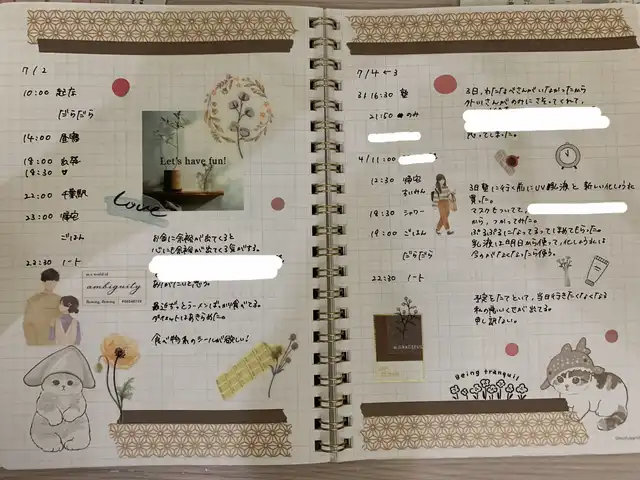 7/2
10:00 起床
だらだら
14:00 昼寝
18:00 出発
18:30
22:00 千葉駅
23:00 帰宅
ごはん
23:30 ノート
Let's have fun!
Love
お金に余裕が出てくると
心にも余裕が出てくる気がする。
ありがたいと思う。
最近ずっとラーメンばっかり食べてる。
ダイエットはあきらめた。
食べ物系のシールが欲しい!
in a world of
ambiguity
7/4 ← 3
3/ 16:30 塾
21:50 のみ
4/ 11:00
12:30 帰宅
すいみん
18:30 シャワー
19:00 ごはん
だらだら
22:30 ノート
3日、わたなべさんがいなかったから
さそってくれて、
しまった。
3日塾に行く前にUV乳液と新しい化しょう水
買った。
マスクもついてて、
から、つかってみた。
乳液は明日から使って、化しょう水は
今のがなくなったら使う。
予定をたてといて、当日行きたくなくなる
私の悪いくせが出てる。
申し訳ない。
Being tranquil